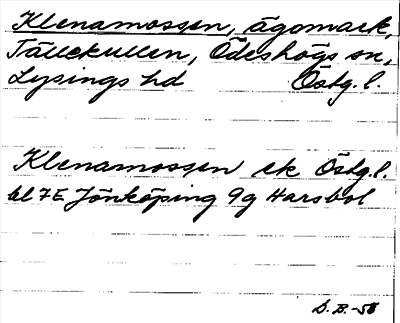 Klenamossen, ägomark,
Tällekullen, Ödeshögs sn,
Lysings hd Östg. l.
Klenamossen ek Östg. l.
bl 7E Jönköping 9g Harsbol
D. B. -58